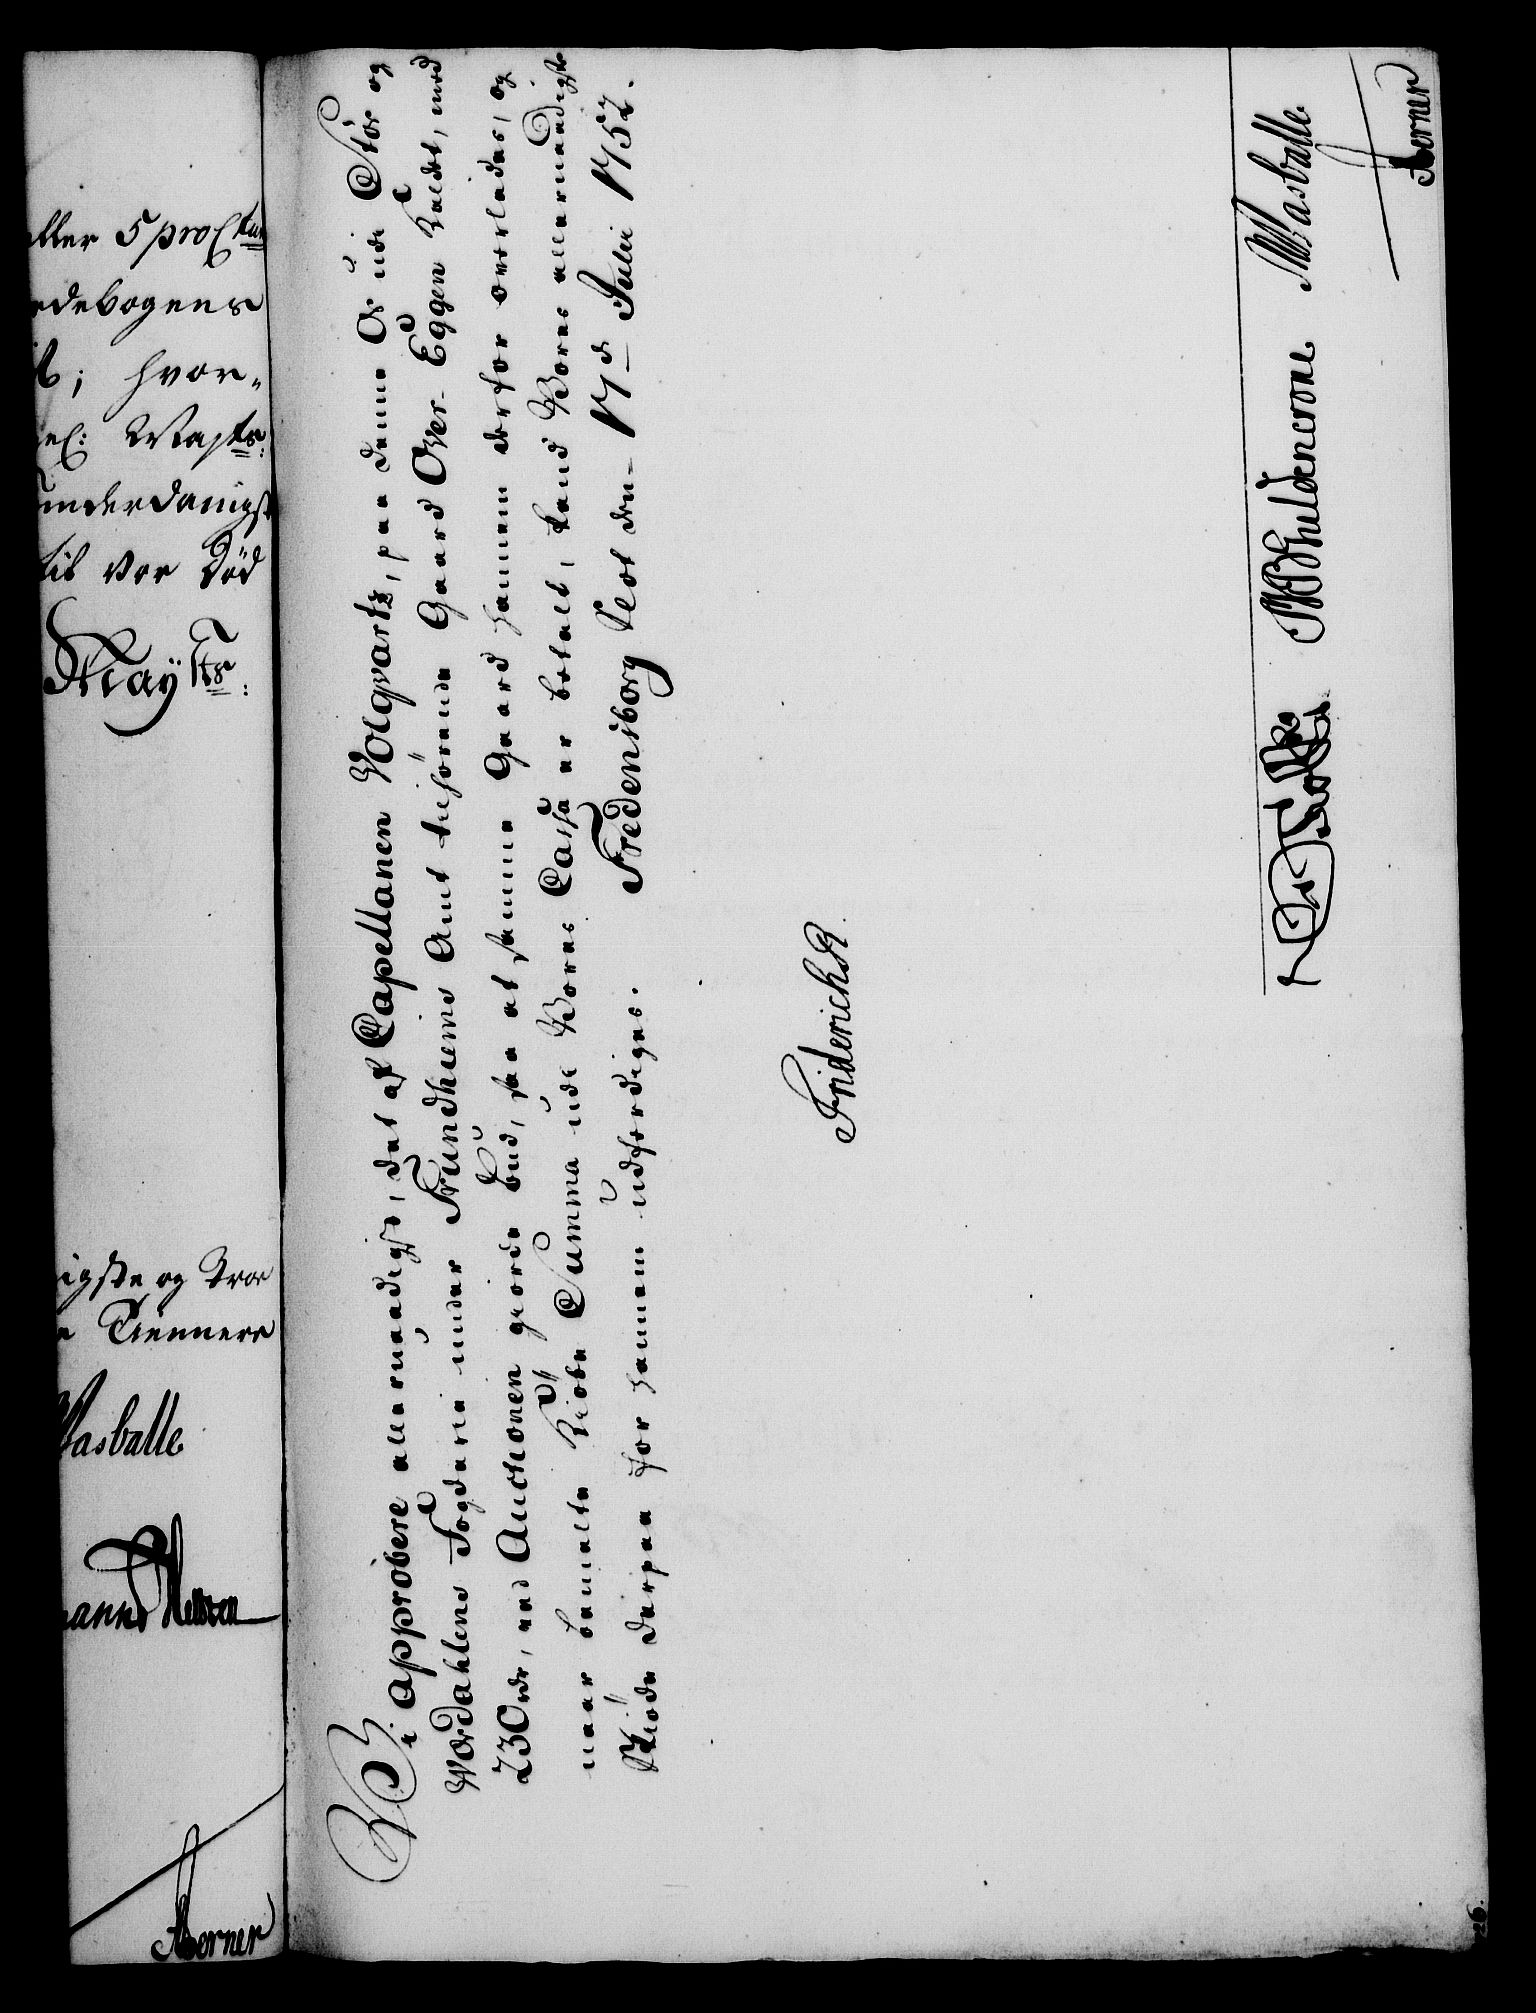 eller 5 proCtum
edebogens
hvor-
Mayts:
underdanigst
til vor Död
Mayts:
igste og Troe
Tiennere
Wasballe
Nelsen
Berner
Vi approbere allernaadigst, det af Capellanen Volqvartz, paa denne Os udi Stör og
Værdahlens Fogderie under Trundhiems Amt tilhörende Gaard Over-Eggen kaldet, med
230 rdr, ved Auctionen giorde Bud, saa at samme Gaard hannem derfor overlades, og
naar bemelte Kiöbe Summa udi Vores Cassa er betalt, kand Vores allernaadigste
Skiöde derpaa for hannem udfærdiges. Fredensborg Slot den 17de Julii 1752.
Friderich R
Holtzke Schuldencrone Wasballe
Berner
26.